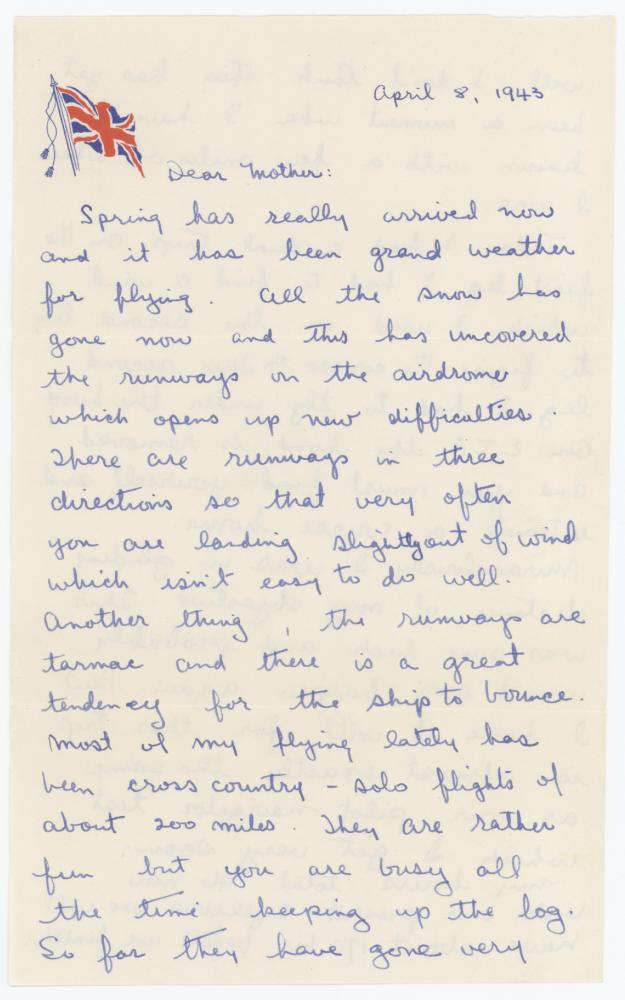 April 8, 1943
Dear Mother:
Spring has really arrived now
and it has been grand weather
for flying. All the snow has
gone now and this has uncovered
the runways on the airdrome
which opens up new difficulties.
There are runways in three
directions so that very often
you are landing slightly out of wind
which isn't easy to do well.
Another thing, the runways are
tarmac and there is a great
tendency for the ship to bounce.
Most of my flying lately has
been cross country - solo flights of
about 200 miles. They are rather
fun but you are busy all
the time keeping up the log.
So far they have gone very